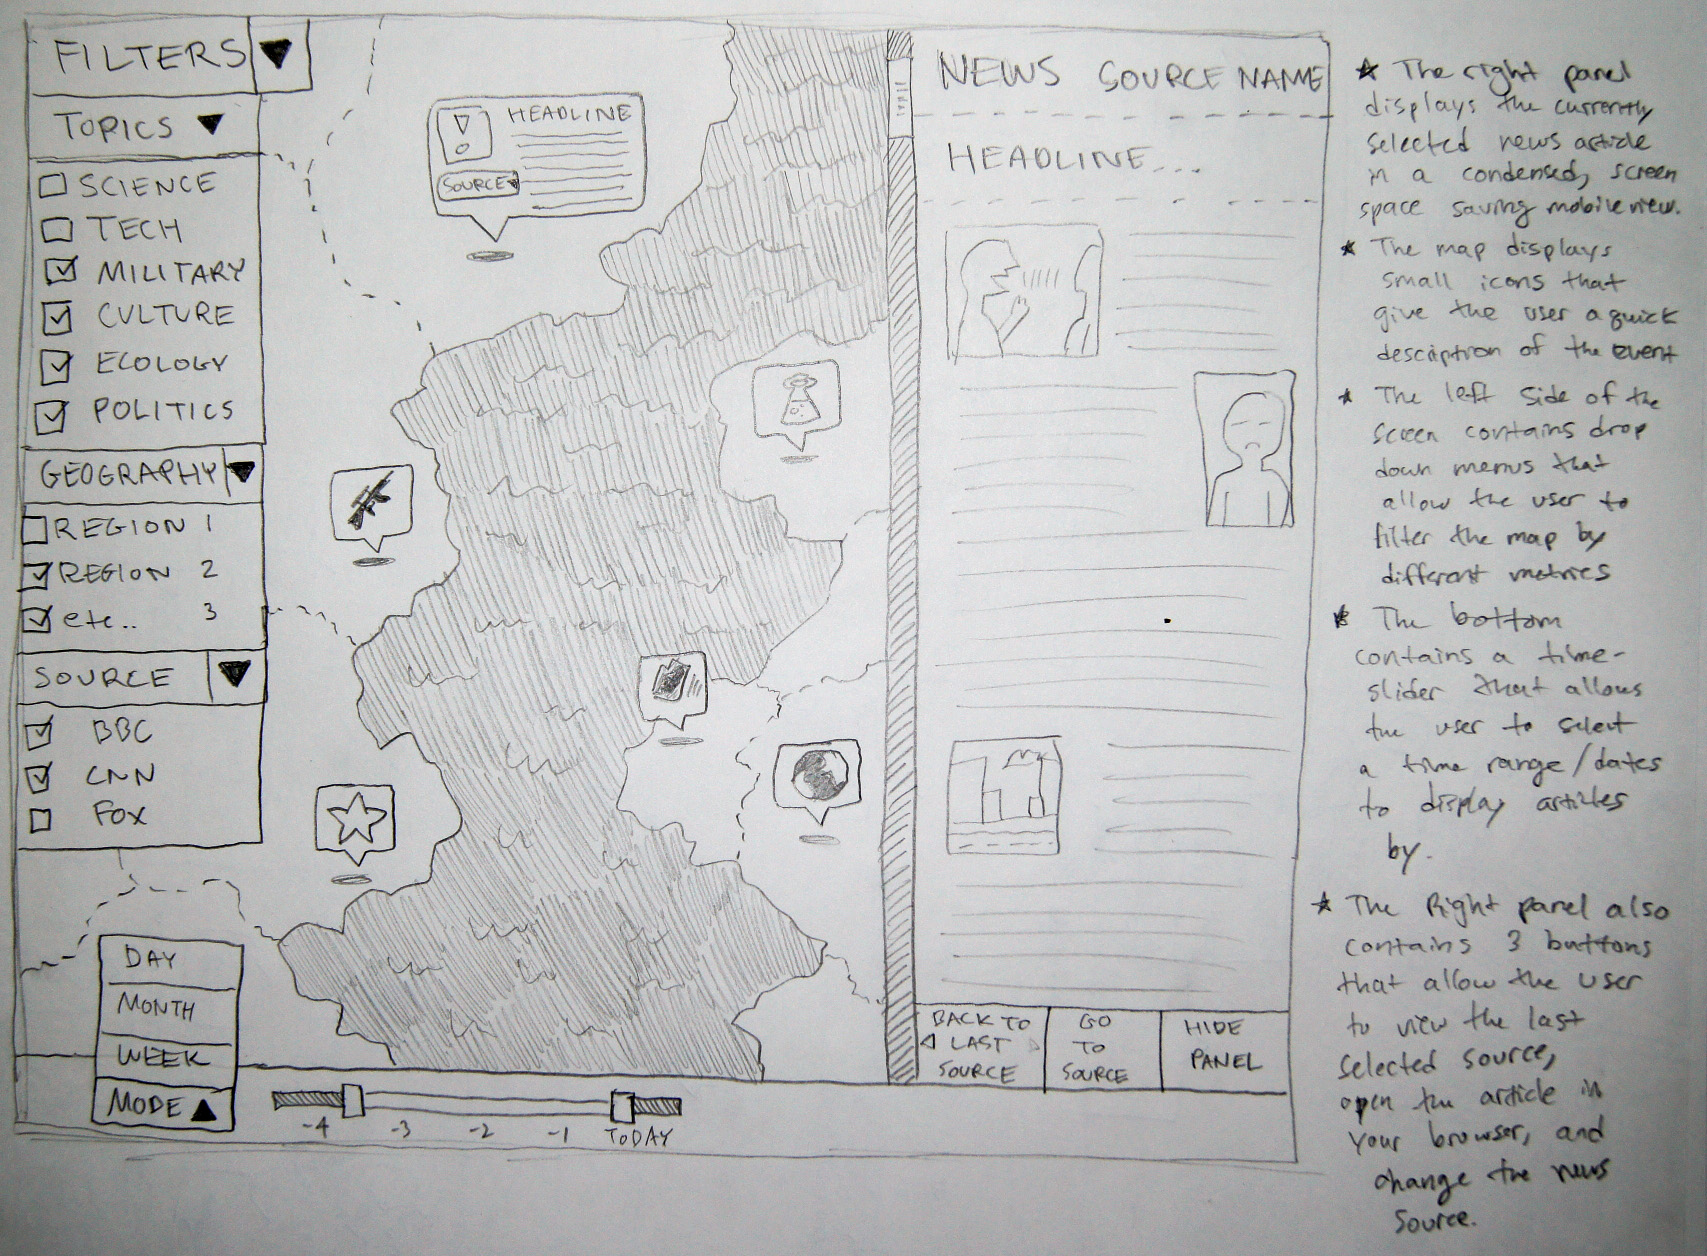 FILTERS
TOPICS
SCIENCE
TECH
MILITARY
CULTURE
ECOLOGY
POLITICS
GEOGRAPHY
REGION 1
REGION 2
etc.. 3
SOURCE
BBC
CNN
FOX
DAY
MONTH
WEEK
MODE
-4 -3 -2 -1 TODAY
HEADLINE
SOURCE
NEWS SOURCE NAME
HEADLINE...
BACK TO
LAST
SOURCE
GO
TO
SOURCE
HIDE
PANEL
★ The right panel
displays the currently
selected news article
in a condensed, screen
space saving mobile view.
★ The map displays
small icons that
give the user a quick
description of the event
★ The left side of the
screen contains drop
down menus that
allow the user to
filter the map by
different metrics
★ The bottom
contains a time-
slider that allows
the user to select
a time range/dates
to display articles
by.
★ The Right panel also
contains 3 buttons
that allow the user
to view the last
selected source,
open the article in
your browser, and
change the news
source.